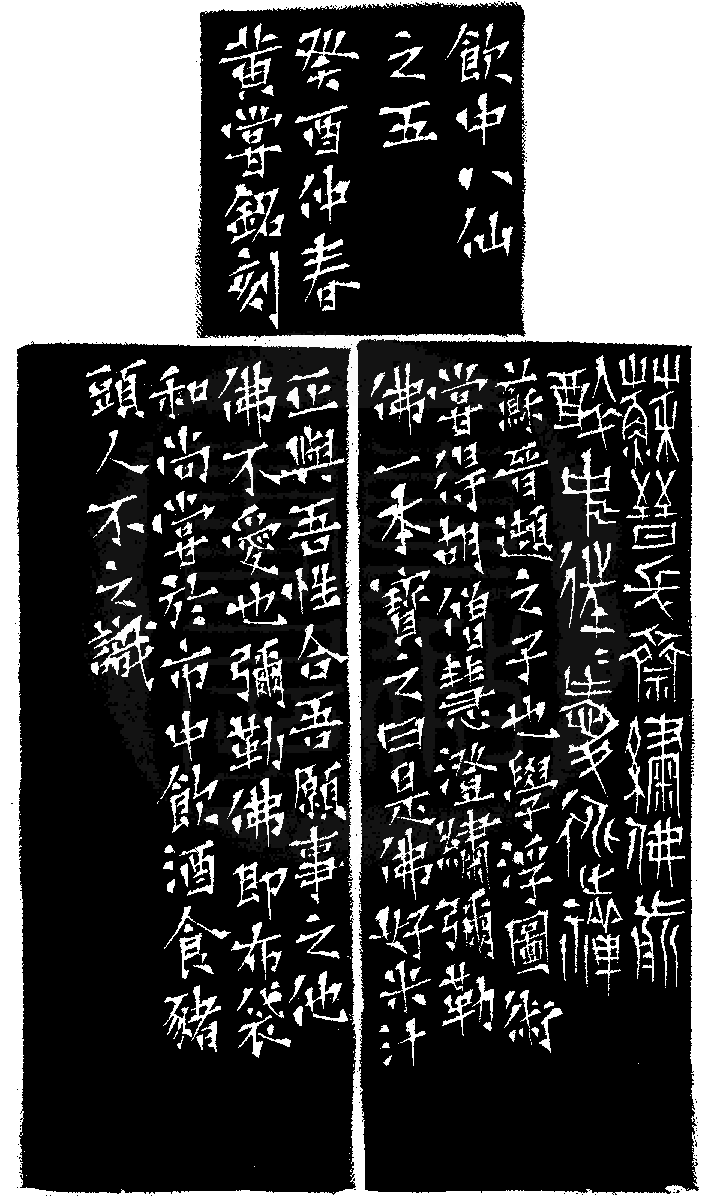 飲中八仙
之五
癸酉仲春
黄嘗銘刻
蘇晉長齋繡佛前
醉中往往愛逃禪
蘇晉之子也學浮圖術
嘗得胡僧慧澄繡彌勒
佛一本寶之曰是佛好米汁
正與吾性合吾願事之他
佛不愛也彌勒佛即布袋
和尚嘗於市中飲酒食豬
頭人不之識